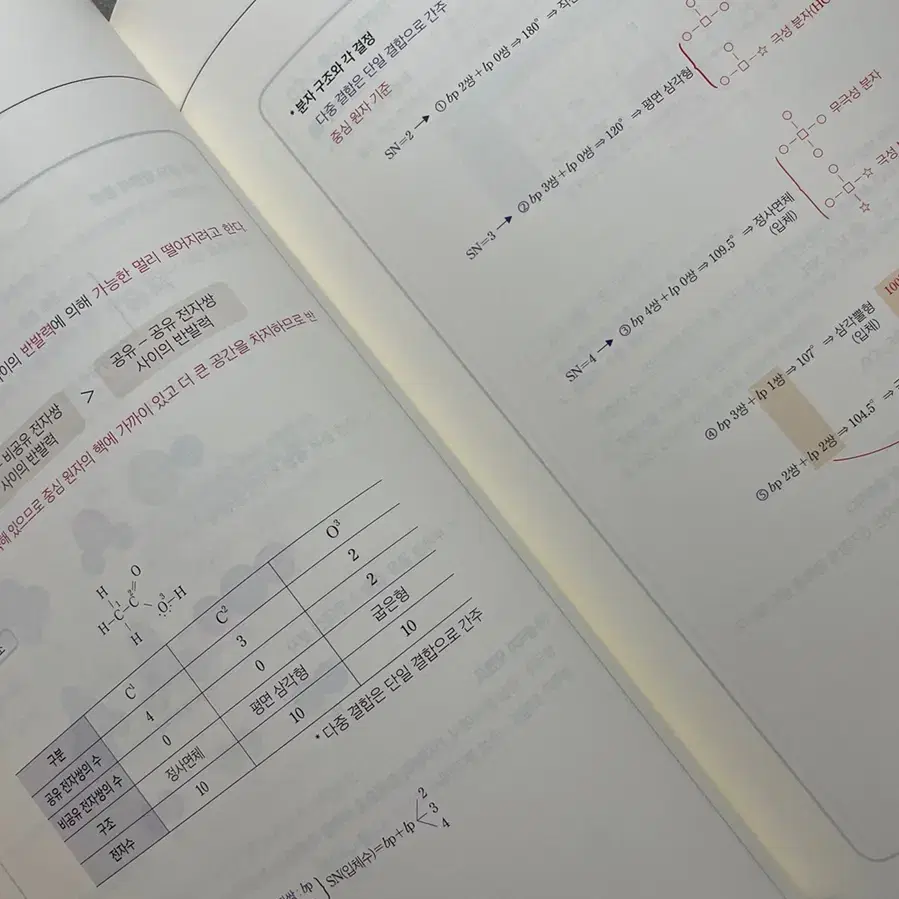 사이의 반발력에 의해 가능한 멀리 떨어지려고 한다.
비공유 전자쌍
사이의 반발력
>
공유 – 공유 전자쌍
사이의 반발력
해 있으므로 중심 원자의 핵에 가까이 있고 더 큰 공간을 차지하므로 반
H O
H–C¹–C²=O³–H
H
구분 C¹ C² O³
공유 전자쌍의 수 4 3 2
비공유 전자쌍의 수 0 0 2
구조 정사면체 평면 삼각형 굽은형
전자수 10 10 10
* 다중 결합은 단일 결합으로 간주
: bp
SN(입체수)=bp+lp
2
3
4
* 분자 구조와 각 결정
다중 결합은 단일 결합으로 간주
중심 원자 기준
SN=2 → ① bp 2쌍+lp 0쌍 ⇒ 180° ⇒
SN=3 → ② bp 3쌍+lp 0쌍 ⇒ 120° ⇒ 평면 삼각형
극성 분자(HC
SN=4 → ③ bp 4쌍+lp 0쌍 ⇒ 109.5° ⇒ 정사면체
(입체)
무극성 분자
극성
④ bp 3쌍+lp 1쌍 ⇒ 107° ⇒ 삼각뿔형
(입체)
100
⑤ bp 2쌍+lp 2쌍 ⇒ 104.5° ⇒